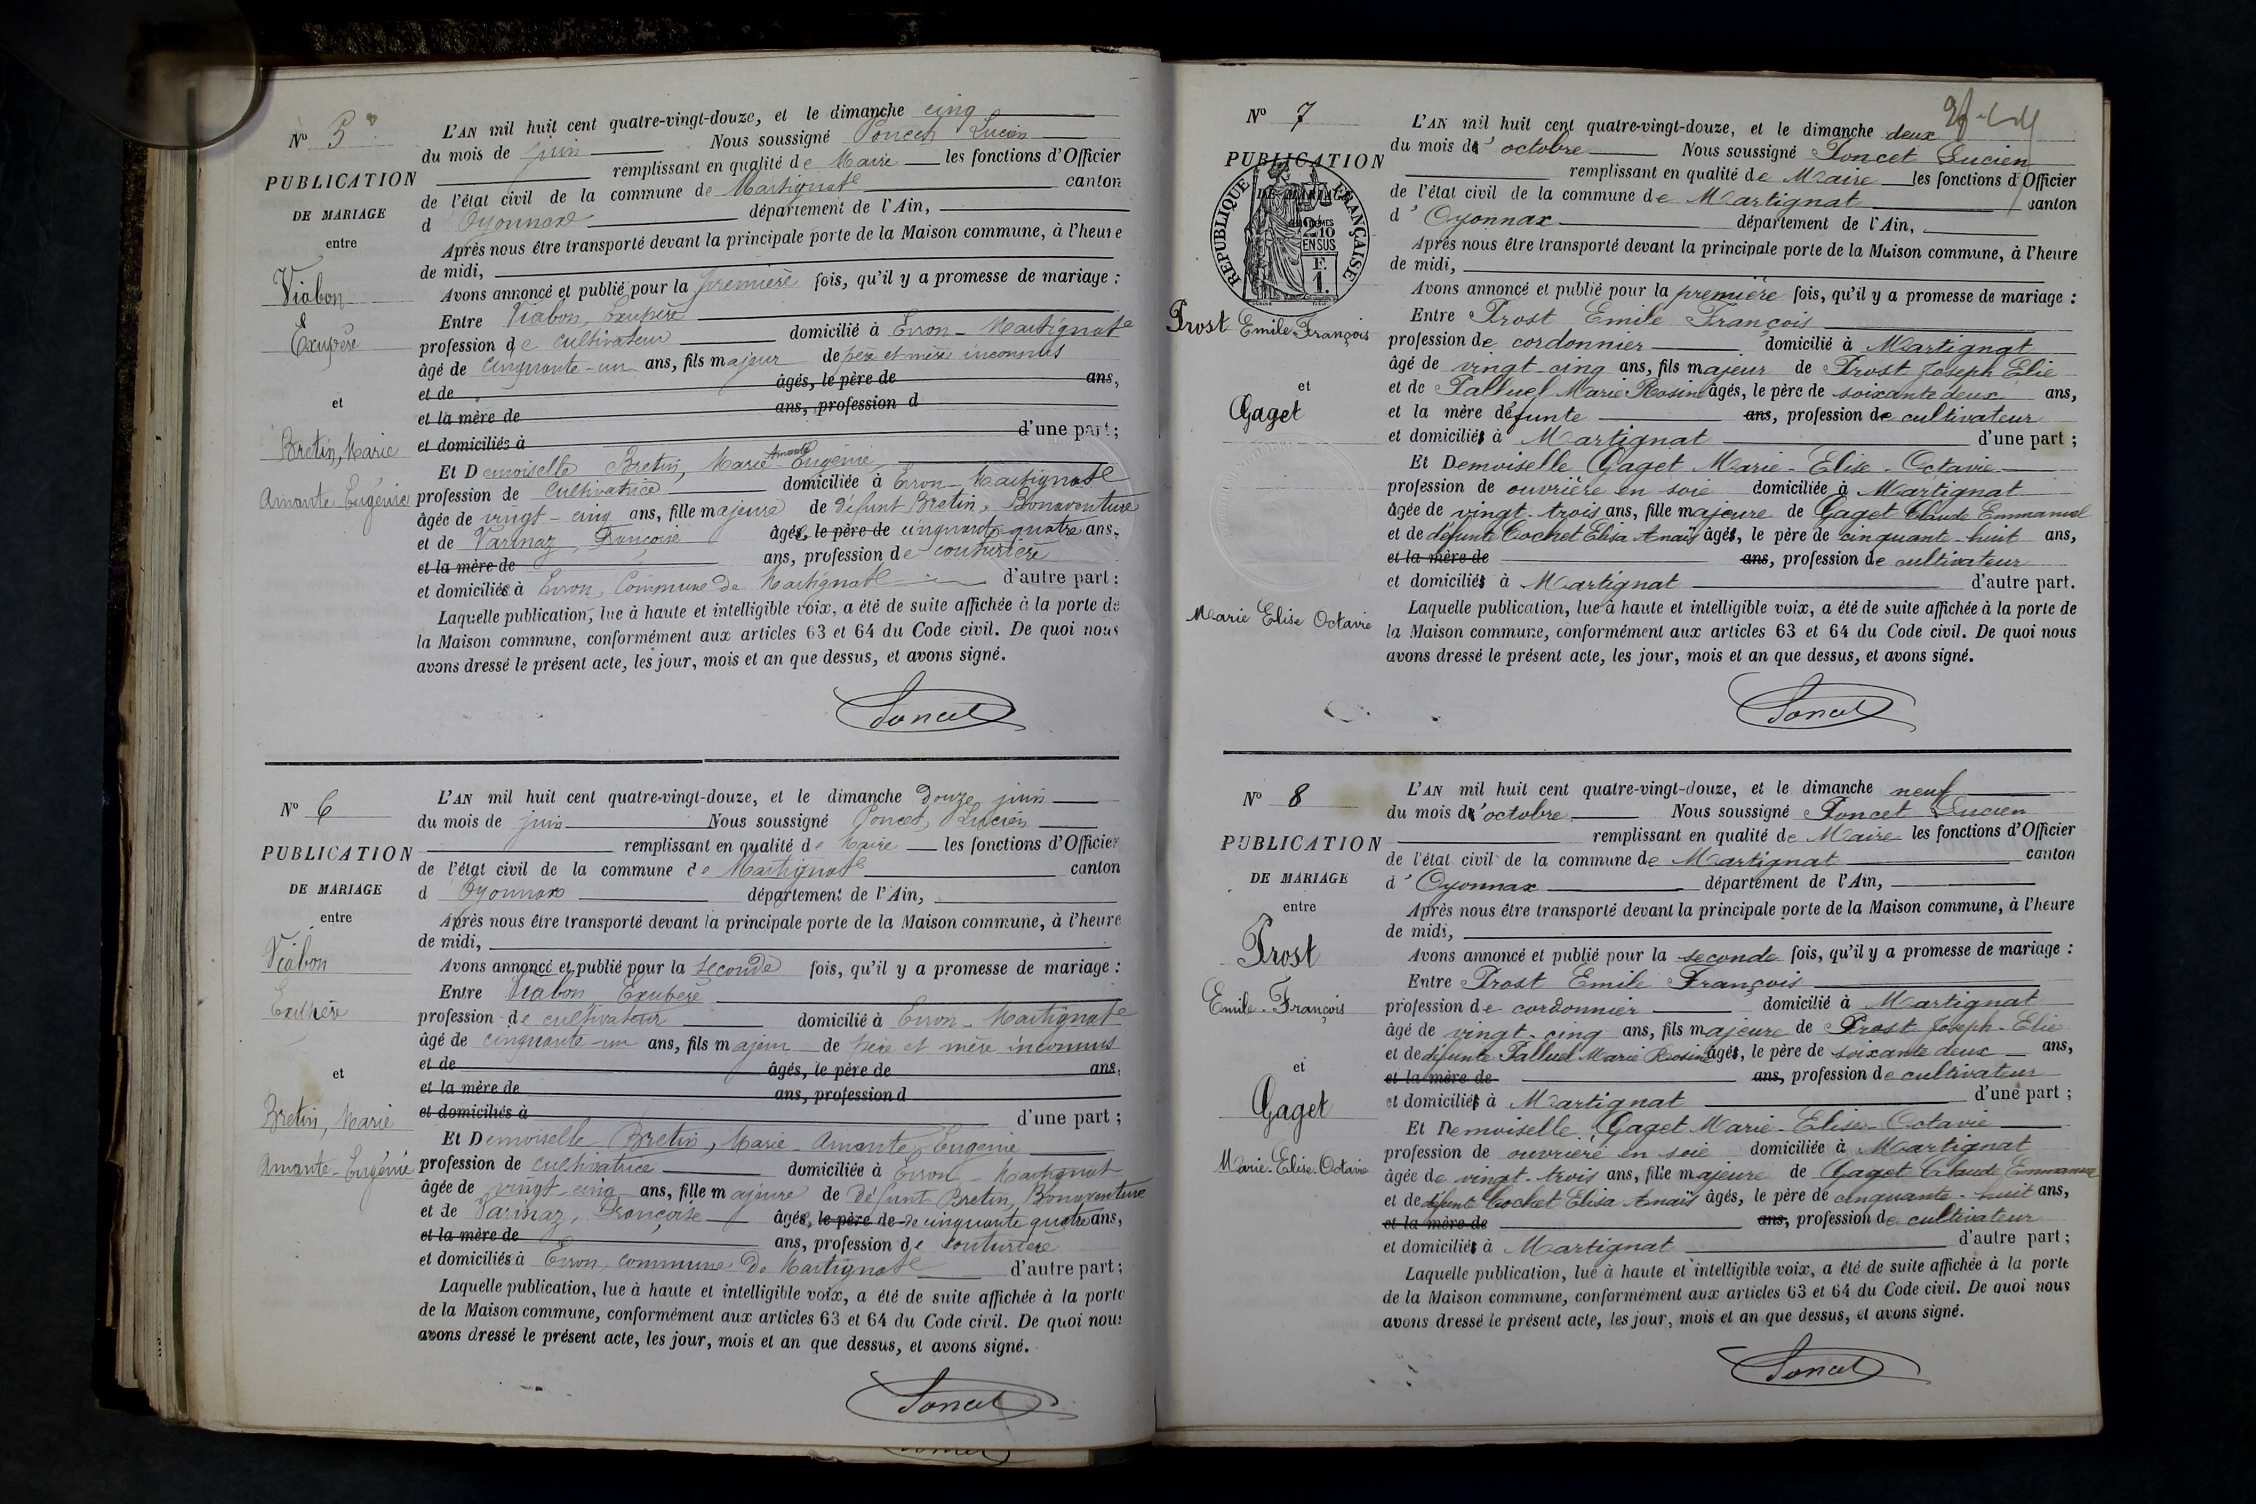 N° 5
PUBLICATION
DE MARIAGE
entre
Viabon
Exupère
et
Bretin, Marie
Amante Eugénie
L'AN mil huit cent quatre-vingt-douze, et le dimanche cinq
du mois de juin Nous soussigné Poncet Lucien
remplissant en qualité de Maire les fonctions d'Officier
de l'état civil de la commune de Martignat canton
d'Oyonnax département de l'Ain,
Après nous être transporté devant la principale porte de la Maison commune, à l'heure
de midi,
Avons annoncé et publié pour la première fois, qu'il y a promesse de mariage :
Entre Viabon, Exupère
profession de cultivateur domicilié à Evron - Martignat
âgé de cinquante-un ans, fils majeur de père et mère inconnus
et de âgés, le père de ans,
et la mère de ans, profession d
et domiciliés à d'une part;
Et Demoiselle Bretin, Marie Amante Eugénie
profession de Cultivatrice domiciliée à Evron - Martignat
âgée de vingt-cinq ans, fille majeure de défunt Bretin, Bonaventure
et de Varinaz, Françoise âgés, le père de cinquante quatre ans,
et la mère de ans, profession de couturière
et domiciliés à Evron, Commune de Martignat d'autre part :
Laquelle publication, lue à haute et intelligible voix, a été de suite affichée à la porte de
la Maison commune, conformément aux articles 63 et 64 du Code civil. De quoi nous
avons dressé le présent acte, les jour, mois et an que dessus, et avons signé.
Poncet
N° 6
PUBLICATION
DE MARIAGE
entre
Viabon
Exupère
et
Bretin, Marie
Amante-Eugénie
L'AN mil huit cent quatre-vingt-douze, et le dimanche douze juin
du mois de juin Nous soussigné Poncet, Lucien
remplissant en qualité de Maire les fonctions d'Officier
de l'état civil de la commune de Martignat canton
d Oyonnax département de l'Ain,
Après nous être transporté devant la principale porte de la Maison commune, à l'heure
de midi,
Avons annoncé et publié pour la seconde fois, qu'il y a promesse de mariage :
Entre Viabon Exupère
profession de cultivateur domicilié à Evron - Martignat
âgé de cinquante-un ans, fils majeur de père et mère inconnus
et de âgés, le père de ans,
et la mère de ans, profession d
et domiciliés à d'une part ;
Et Demoiselle Bretin, Marie-Amante-Eugénie
profession de cultivatrice domiciliée à Evron - Martignat
âgée de vingt-cinq ans, fille majeure de Défunt Bretin, Bonaventure
et de Varinaz, Françoise âgés, le père de de cinquante quatre ans,
et la mère de ans, profession de couturière
et domiciliés à Evron, commune de Martignat d'autre part ;
Laquelle publication, lue à haute et intelligible voix, a été de suite affichée à la porte
de la Maison commune, conformément aux articles 63 et 64 du Code civil. De quoi nous
avons dressé le présent acte, les jour, mois et an que dessus, et avons signé.
Poncet
N° 7
PUBLICATION
DE MARIAGE
RÉPUBLIQUE FRANÇAISE
2/10
EN SUS
F.
1.
Prost Emile-François
et
Gaget
Marie Elise Octavie
L'AN mil huit cent quatre-vingt-douze, et le dimanche deux
du mois d'octobre Nous soussigné Poncet Lucien
remplissant en qualité de Maire les fonctions d'Officier
de l'état civil de la commune de Martignat canton
d'Oyonnax département de l'Ain,
Après nous être transporté devant la principale porte de la Maison commune, à l'heure
de midi,
Avons annoncé et publié pour la première fois, qu'il y a promesse de mariage :
Entre Prost Emile François
profession de cordonnier domicilié à Martignat
âgé de vingt-cinq ans, fils majeur de Prost Joseph Elie
et de Palluel Marie Rosine âgés, le père de soixante deux ans,
et la mère défunte ans, profession de cultivateur
et domiciliés à Martignat d'une part ;
Et Demoiselle Gaget Marie-Elise-Octavie
profession de ouvrière en soie domiciliée à Martignat
âgée de vingt-trois ans, fille majeure de Gaget Claude Emmanuel
et de défunte Cochet Elisa Anaïs âgés, le père de cinquante-huit ans,
et la mère de ans, profession de cultivateur
et domiciliés à Martignat d'autre part.
Laquelle publication, lue à haute et intelligible voix, a été de suite affichée à la porte de
la Maison commune, conformément aux articles 63 et 64 du Code civil. De quoi nous
avons dressé le présent acte, les jour, mois et an que dessus, et avons signé.
Poncet
N° 8
PUBLICATION
DE MARIAGE
entre
Prost
Emile-François
et
Gaget
Marie-Elise-Octavie
L'AN mil huit cent quatre-vingt-douze, et le dimanche neuf
du mois d'octobre Nous soussigné Poncet Lucien
remplissant en qualité de Maire les fonctions d'Officier
de l'état civil de la commune de Martignat canton
d'Oyonnax département de l'Ain,
Après nous être transporté devant la principale porte de la Maison commune, à l'heure
de midi,
Avons annoncé et publié pour la seconde fois, qu'il y a promesse de mariage :
Entre Prost Emile François
profession de cordonnier domicilié à Martignat
âgé de vingt-cinq ans, fils majeure de Prost Joseph-Elie
et de défunte Palluel Marie Rosine âgés, le père de soixante deux ans,
et la mère de ans, profession de cultivateur
et domiciliés à Martignat d'une part ;
Et Demoiselle Gaget Marie-Elise-Octavie
profession de ouvrière en soie domiciliée à Martignat
âgée de vingt-trois ans, fille majeure de Gaget Claude Emmanuel
et de défunte Cochet Elisa Anaïs âgés, le père de cinquante-huit ans,
et la mère de ans, profession de cultivateur
et domiciliés à Martignat d'autre part ;
Laquelle publication, lue à haute et intelligible voix, a été de suite affichée à la porte
de la Maison commune, conformément aux articles 63 et 64 du Code civil. De quoi nous
avons dressé le présent acte, les jour, mois et an que dessus, et avons signé.
Poncet